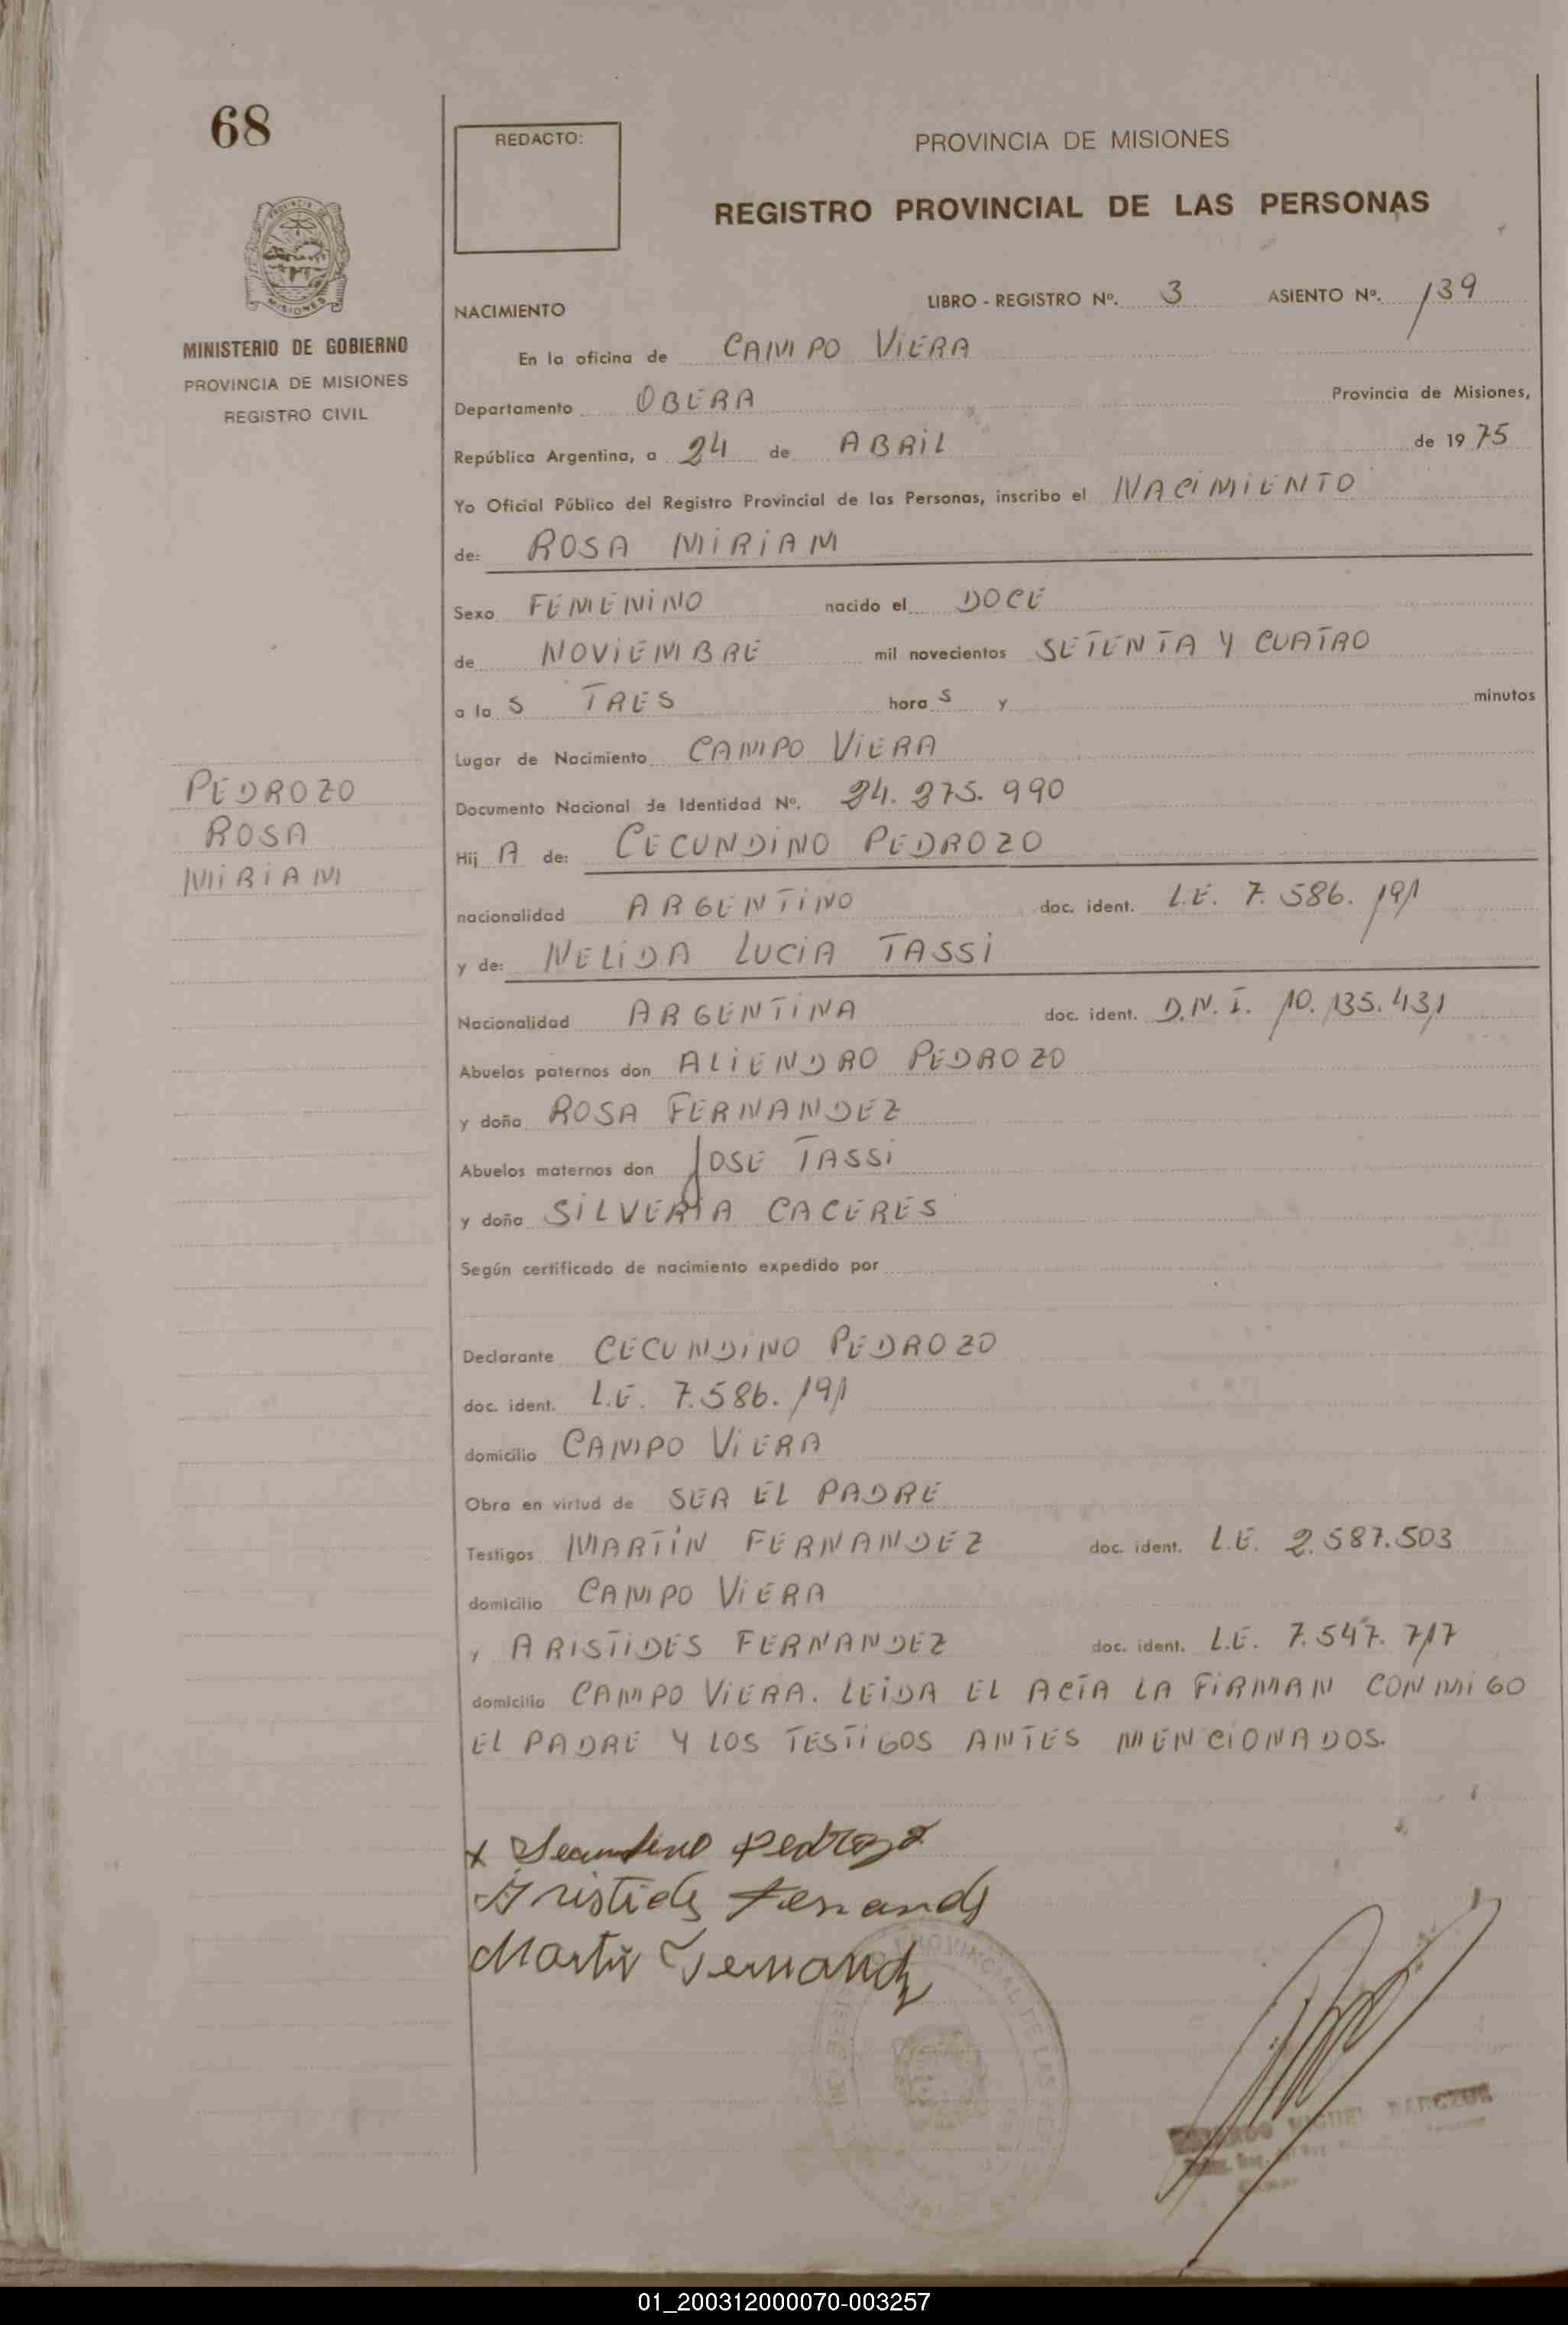 68
REDACTO:
PROVINCIA DE MISIONES
REGISTRO PROVINCIAL DE LAS PERSONAS
MISIONES
MINISTERIO DE GOBIERNO
PROVINCIA DE MISIONES
REGISTRO CIVIL
NACIMIENTO
LIBRO - REGISTRO Nº. 3 ASIENTO Nº. 139
En la oficina de CAMPO VIERA
Departamento OBERA Provincia de Misiones,
República Argentina, a 24 de ABRIL de 1975
Yo Oficial Público del Registro Provincial de las Personas, inscribo el NACIMIENTO
de: ROSA MIRIAM
Sexo FEMENINO nacido el DOCE
de NOVIEMBRE mil novecientos SETENTA Y CUATRO
a la S TRES hora S y minutos
Lugar de Nacimiento CAMPO VIERA
PEDROZO
ROSA
MIRIAM
Documento Nacional de Identidad Nº. 24.275.990
Hij A de: CECUNDINO PEDROZO
nacionalidad ARGENTINO doc. ident. L.E. 7.586.191
y de: NELIDA LUCIA TASSI
Nacionalidad ARGENTINA doc. ident. D.N.I. 10.135.431
Abuelos paternos don ALIENDRO PEDROZO
y doña ROSA FERNANDEZ
Abuelos maternos don JOSE TASSI
y doña SILVERIA CACERES
Según certificado de nacimiento expedido por
Declarante CECUNDINO PEDROZO
doc. ident. L.E. 7.586.191
domicilio CAMPO VIERA
Obra en virtud de SER EL PADRE
Testigos MARTIN FERNANDEZ doc. ident. L.E. 2.587.503
domicilio CAMPO VIERA
y ARISTIDES FERNANDEZ doc. ident. L.E. 7.547.717
domicilio CAMPO VIERA. LEIDA EL ACTA LA FIRMAN CONMIGO
EL PADRE Y LOS TESTIGOS ANTES MENCIONADOS.
x Secundino Pedrozo
Aristides Fernandz
Martin Fernandz
PROVINCIAL DE LAS
MIGUEL
01_200312000070-003257